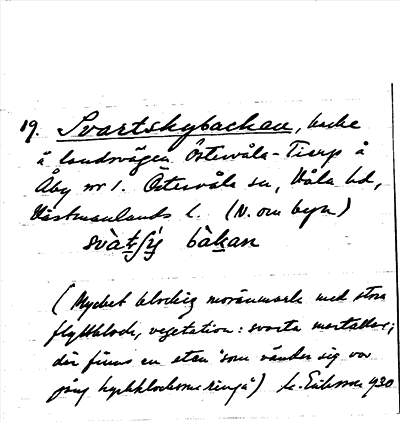 19. Svartskybacken, backe
å landsvägen Östervåla-Tierp å
Åby nr 1. Östervåla sn, Våla hd,
Västmanlands l. (N. om byn)
svàt̠ʃy̠ bàk̠an
(Mycket blockig moränmark med stora
flyttblock, vegetation: svarta martallar;
där finns en sten "som vänder sig var
gång kyrkklockorna ringa") M. Eriksson 1930